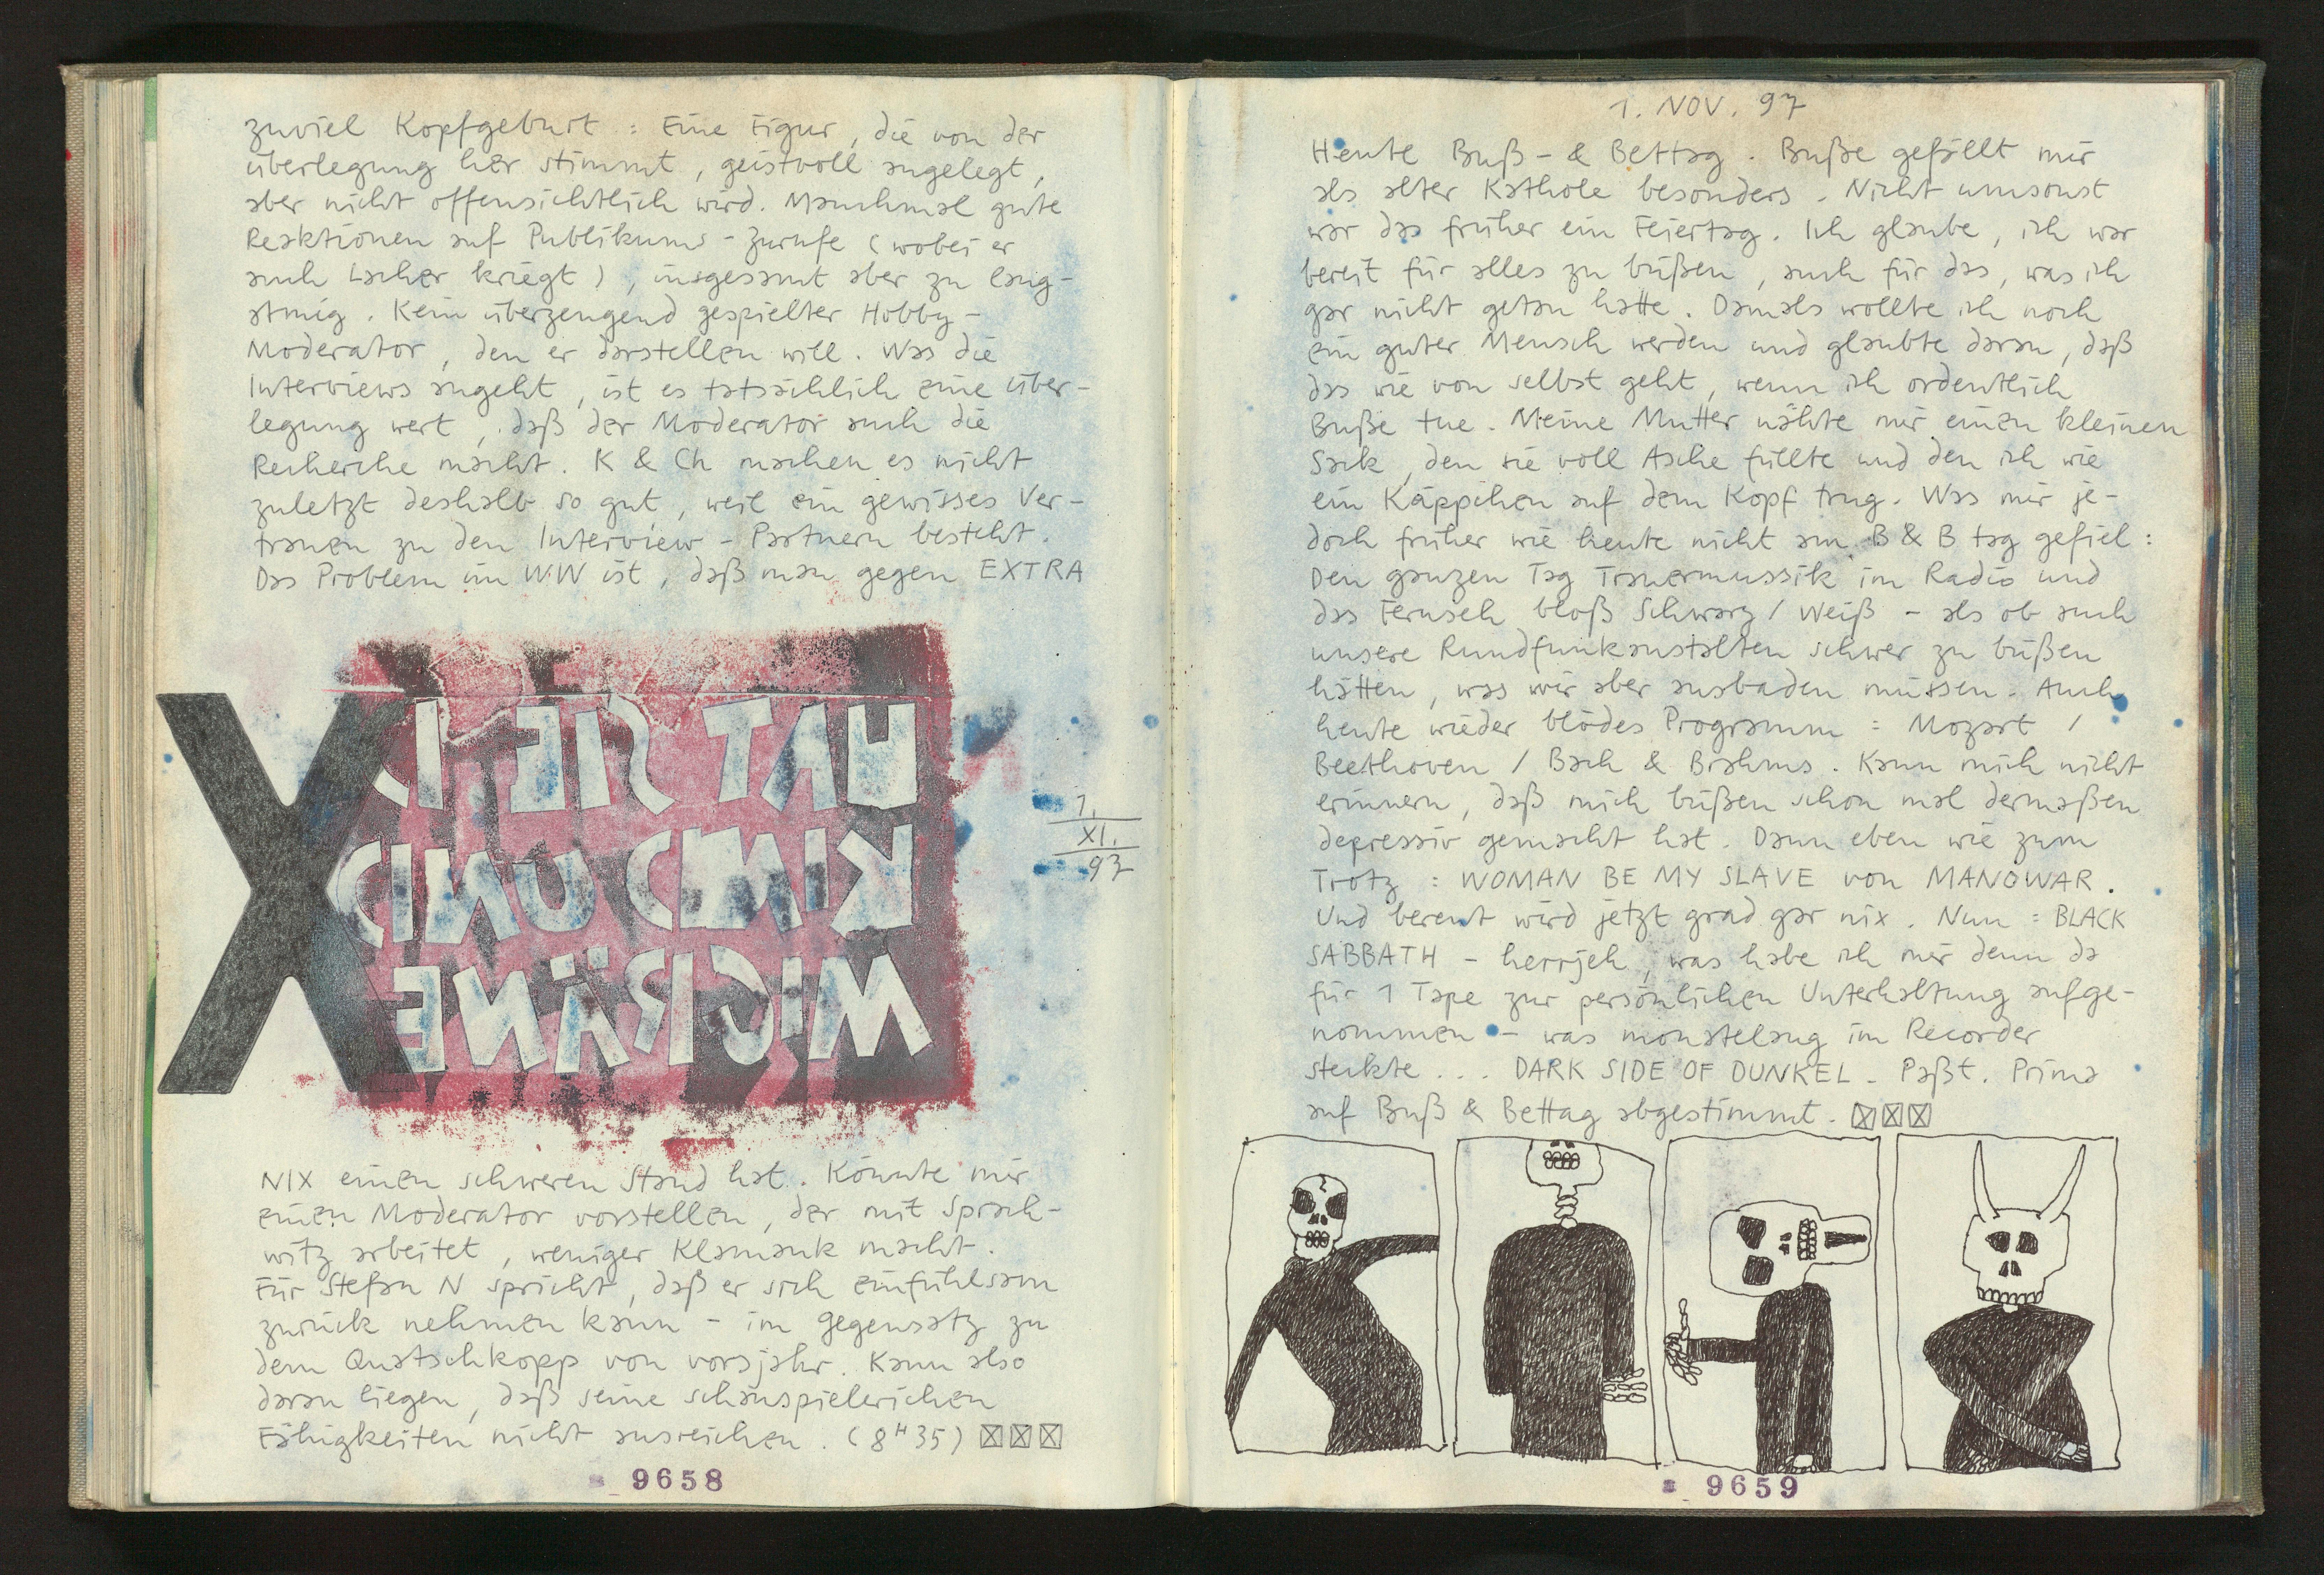 zuviel Kopfgeburt : Eine Figur, die von der
überlegung her stimmt, geistvoll angelegt,
aber nicht offensichtlich wird. Manchmal gute
Reaktionen auf Publikums-Zurufe (wobei er
auch Lacher kriegt), insgesamt aber zu lang-
atmig. Kein überzeugend gespielter Hobby-
Moderator, den er darstellen will. Was die
Interviews angeht, ist es tatsächlich eine über-
legung wert, daß der Moderator auch die
Recherche macht. K & Ch machen es nicht
zuletzt deshalb so gut, weil ein gewisses Ver-
trauen zu den Interview-Partnern besteht.
Das Problem im WW ist, daß man gegen EXTRA
X
HAT SIE
KIND UND
MIGRÄNE
1.
XI.
97
NIX einen schweren Stand hat. Könnte mir
einen Moderator vorstellen, der mit Sprach-
witz arbeitet, weniger Klamauk macht.
Für Stefan N spricht, daß er sich einfühlsam
zurück nehmen kann - im gegensatz zu
dem Quatschkopp von vorsjahr. Kann also
daran liegen, daß seine schauspielerichen
Fähigkeiten nicht ausreichen. (8H35)
9658
1. NOV. 97
Heute Buß- & Bettag. Buße gefällt mir
als alter Kathole besonders. Nicht umsonst
war das früher ein Feiertag. Ich glaube, ich war
bereit für alles zu büßen, auch für das, was ich
gar nicht getan hatte. Damals wollte ich noch
ein guter Mensch werden und glaubte daran, daß
das wie von selbst geht, wenn ich ordentlich
Buße tue. Meine Mutter nähte mir einen kleinen
Sack, den sie voll Asche füllte und den ich wie
ein Käppchen auf dem Kopf trug. Was mir je-
doch früher wie heute nicht am B & B tag gefiel :
Den ganzen Tag Trauermussik im Radio und
das Fernseh bloß Schwarz / Weiß - als ob auch
unsere Rundfunkanstalten schwer zu büßen
hätten, was wir aber ausbaden müssen. Auch
heute wieder blödes Programm : Mozart /
Beethoven / Bach & Brahms. Kann mich nicht
erinnern, daß mich büßen schon mal dermaßen
depressiv gemacht hat. Dann eben wie zum
Trotz : WOMAN BE MY SLAVE von MANOWAR.
Und bereut wird jetzt grad gar nix. Nun : BLACK
SABBATH - herrjeh, was habe ich mir denn da
für 1 Tape zur persönlichen Unterhaltung aufge-
nommen - was monatelang im Recorder
steckte ... DARK SIDE OF DUNKEL. Paßt. Prima
auf Buß & Bettag abgestimmt.
9659